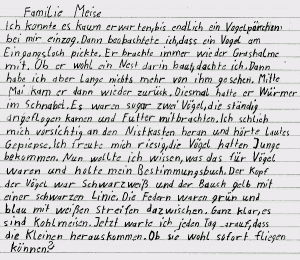 Familie Meise
Ich konnte es kaum erwarten, bis endlich ein Vogelpärchen
bei mir einzog. Dann beobachtete ich, dass ein Vogel am
Eingangsloch pickte. Er brachte immer wieder Grashalme
mit. Ob er wohl ein Nest darin baut, dachte ich. Dann
habe ich aber lange nichts mehr von ihm gesehen. Mitte
Mai kam er dann wieder zurück. Diesmal hatte er Würmer
im Schnabel. Es waren sogar zwei Vögel, die ständig
angeflogen kamen und Futter mitbrachten. Ich schlich
mich vorsichtig an den Nistkasten heran und hörte lautes
Gepiepse. Ich freute mich riesig, die Vögel hatten Junge
bekommen. Nun wollte ich wissen, was das für Vögel
waren und holte mein Bestimmungsbuch. Der Kopf
der Vögel war Schwarzweiß und der Bauch gelb mit
einer schwarzen Linie. Die Federn waren grün und
blau mit weißen Streifen dazwischen. Ganz klar, es
sind Kohlmeisen. Jetzt warte ich jeden Tag arauf, dass
die Kleinen herauskommen. Ob sie wohl sofort fliegen
können?